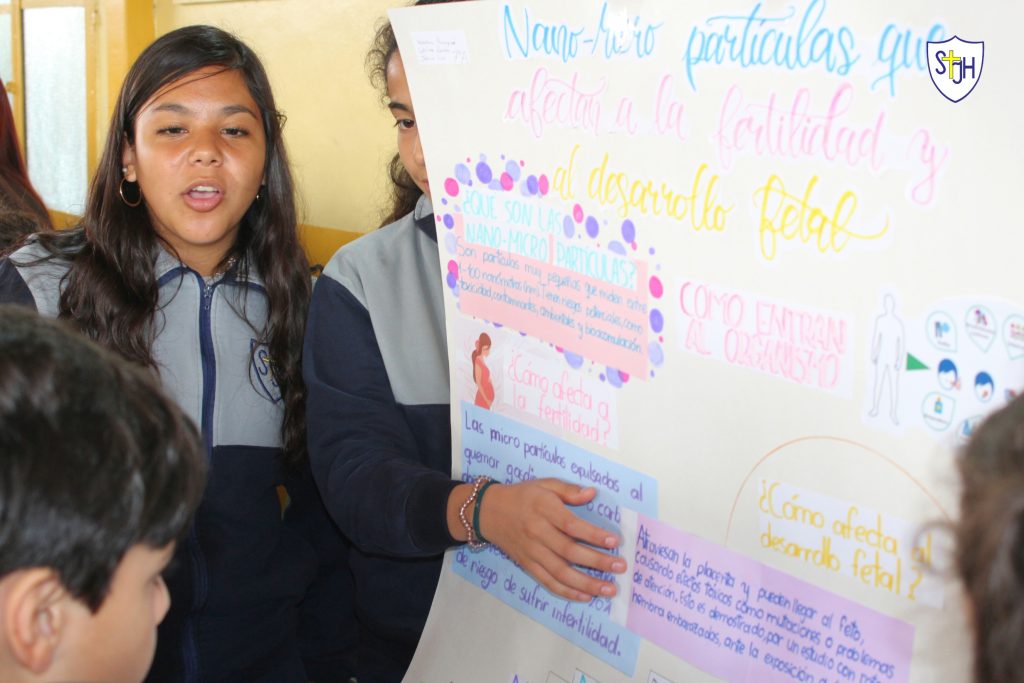 Nano-Micro partículas que
afectan a la fertilidad y
al desarrollo fetal
STJH
¿QUE SON LAS
NANO-MICRO PARTÍCULAS?
Son partículas muy pequeñas que miden entre
1-100 nanómetros (nm). Tienen riesgos potenciales, como
toxicidad, contaminantes, ambientales y bioacomulación.
COMO ENTRAN
AL ORGANISMO
¿Cómo afecta a
la fertilidad?
Las micro partículas expulsadas al
quemar gasolina carb
de riesgo de sufrir infertilidad.
¿Cómo afecta al
desarrollo fetal?
Atraviesan la placenta y pueden llegar al feto,
causando efectos tóxicos como mutaciones o problemas
de atención. Esto es demostrado, por un estudio con
hembra embarazadas, ante la exposición